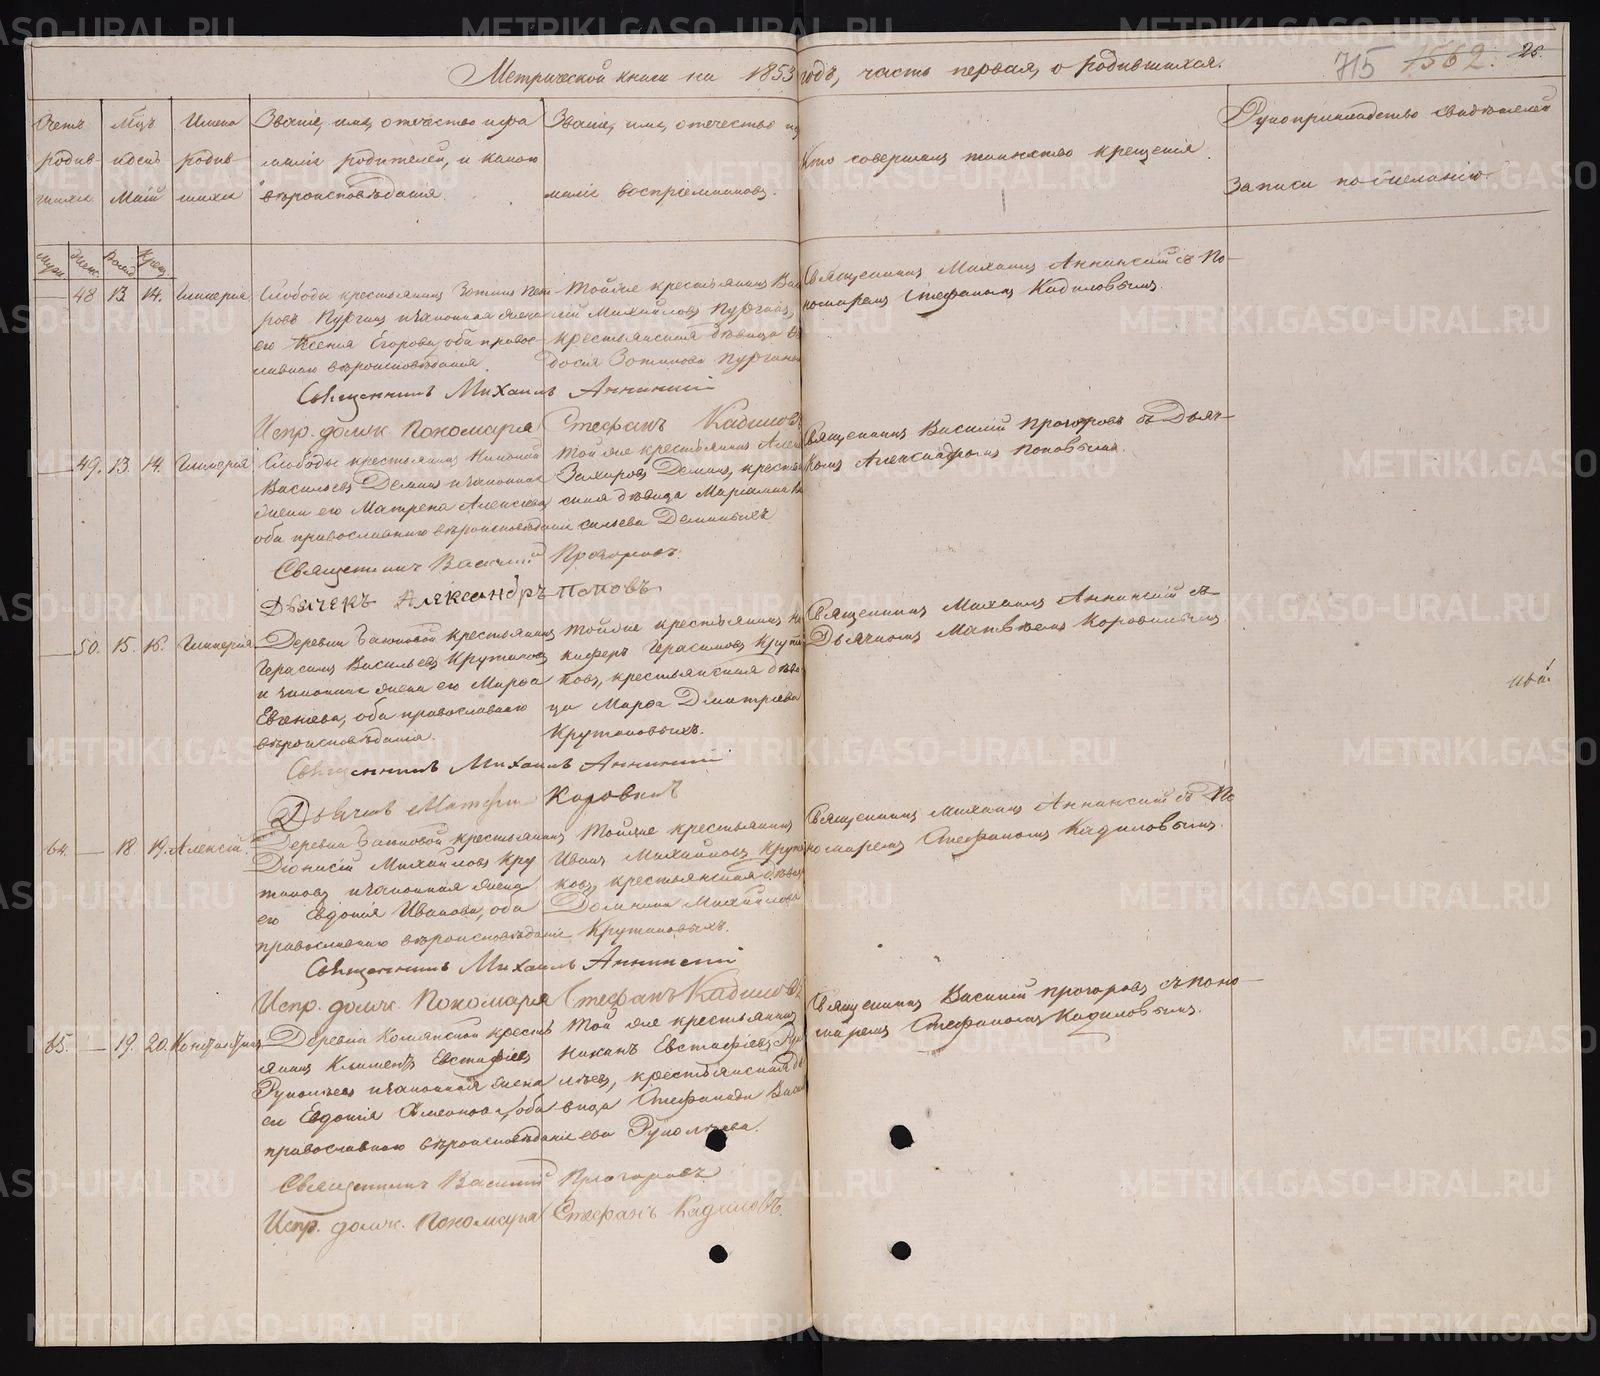 Метрической книги на 1853 годъ, часть первая, о родившихся.
715 1562. 26.
Счетъ родившихся
Мѣсяцъ и день Май
Имена родившихся
Званіе, имя, отчество и фамилія родителей, и какого вѣроисповѣданія.
Званіе, имя, отечество и фамилія воспріемниковъ.
Кто совершалъ таинство крещенія.
Рукоприкладство свидѣтелей записи по желанію.
Муж. Жен. Рожд. Крещ.
— 48 13. 14. Гликерія
Слободы крестьянинъ Зотикъ Пет-
ровъ Пургинъ и законная жена
его Ксенія Егорова, оба право-
славнаго вѣроисповѣданія.
Той же крестьянинъ Васи-
лій Михайловъ Пургинъ,
крестьянская дѣвица Ѳе-
досія Зотикова Пургины
Священникъ Михаилъ Аннинскій съ По-
номаремъ Стефаномъ Кадиловымъ.
Священникъ Михаилъ Аннинскій
Испр. должн. Пономаря Стефанъ Кадиловъ
— 49. 13. 14. Гликерія
Слободы крестьянинъ
Васильевъ Деминъ и законная
жена его Матрена Алексѣева
оба православнаго вѣроисповѣданія
Той же крестьянинъ
Захаровъ Деминъ, крестьян-
ская дѣвица Маріамна Ва-
сильева Деминыхъ
Священникъ Василій Прозоровъ съ Дьяч-
комъ Александромъ Поповымъ.
Священникъ Василій Прозоровъ.
Дьячекъ Александръ Поповъ
— 50. 15. 16. Гликерія
Деревни крестьянинъ
Герасимъ Васильевъ Крутиковъ
и законная жена его Марфа
Евгеніева, оба православнаго
вѣроисповѣданія.
Той же крестьянинъ Ни-
кифоръ Герасимовъ Крути-
ковъ, крестьянская дѣви-
ца Марфа Дмитріева
Крутиковыхъ.
Священникъ Михаилъ Аннинскій съ
Дьячкомъ Матвѣемъ Коровинымъ.
Священникъ Михаилъ Аннинскій
Дьячекъ Матфей Коровинъ
64. — 18 19. Алексій.
Деревни крестьянинъ
Діонисій Михайловъ Кру-
тиковъ и законная жена
его Евдокія Иванова, оба
православнаго вѣроисповѣданія
Той же крестьянинъ
Иванъ Михайловъ Крути-
ковъ, крестьянская дѣвица
Домника Михайлова
Крутиковыхъ.
Священникъ Михаилъ Аннинскій съ По-
номаремъ Стефаномъ Кадиловымъ.
Священникъ Михаилъ Аннинскій
Испр. должн. Пономаря Стефанъ Кадиловъ
65. — 19. 20. Константинъ
Деревни кресть-
янинъ Климентъ Евстафіевъ
и законная жена
его Евдокія Симеонова, оба
православнаго вѣроисповѣданія
Той же крестьянинъ
Евстафіевъ
крестьянская дѣ-
вица Стефанида Василь-
ева
Священникъ Василій Прозоровъ съ поно-
маремъ Стефаномъ Кадиловымъ.
Священникъ Василій Прозоровъ
Испр. должн. Пономаря Стефанъ Кадиловъ.
METRIKI.GASO-URAL.RU